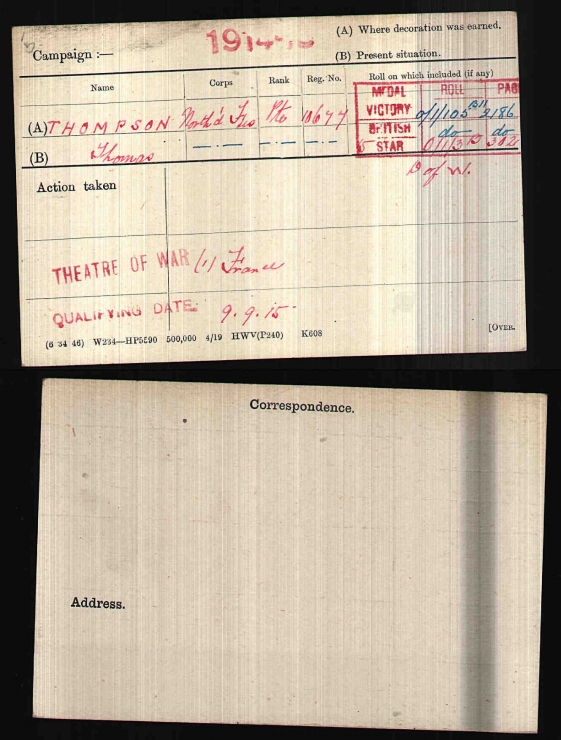 Campaign :—
1914-15
(A) Where decoration was earned.
(B) Present situation.
Name Corps Rank Reg. No. Roll on which included (if any)
MEDAL ROLL PAG
(A) THOMPSON North'd Fus Pte 10677 VICTORY O/1/105 B11 2186
BRITISH do do
(B) Thomas STAR
D of W.
Action taken
THEATRE OF WAR (1) France
QUALIFYING DATE. 9.9.15
(6 34 46) W234—HP5590 500,000 4/19 HWV(P240) K608
[OVER.
Correspondence.
Address.